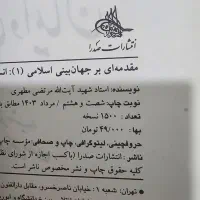 انتشارات صدرا
مقدمه‌ای بر جهان‌بینی اسلامی (۱): انـ
نویسنده: استاد شهید آیت‌الله مرتضی مطهری
نوبت چاپ: شصت و هشتم / مرداد ۱۴۰۳ مطابق با
تعداد: ۱۵۰۰ نسخه
بها: ۴۹/۰۰۰ تومان
حروفچینی، لیتوگرافی، چاپ و صحافی: مؤسسه چاپ
ناشر: انتشارات صدرا (با کسب اجازه از شورای نظا
کلیه حقوق چاپ و نشر مخصوص ناشر است.
تهران: شعبه ۱: خیابان ناصرخسرو، مقابل دارالفنون